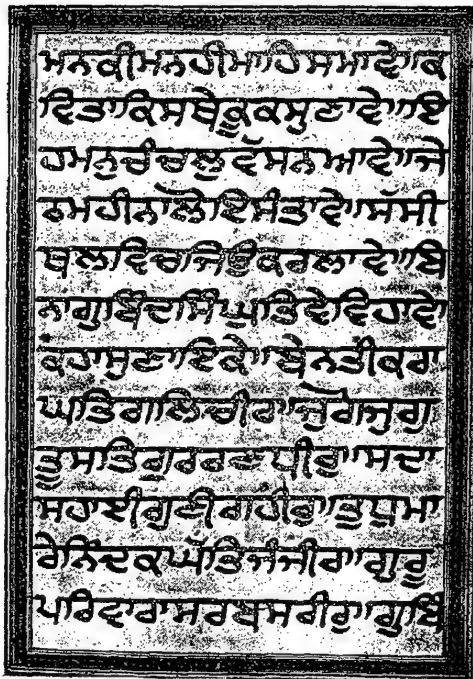 ਮਨਕੀਮਨਹੀਮਾਹਿਸਮਾਵੇ॥ਕ
ਵਿਤਾਕਿਸਥੈਕੂਕਸੁਣਾਵੇ॥ਇ
ਹਮਨੁਚੰਚਲੁਵੱਸਨਆਵੇ॥ਜੇ
ਠਮਹੀਨਾਲੋਇਸੰਤਾਵੇ॥ਸੱਸੀ
ਥਲਵਿਚਜਿਉਕਰਲਾਵੇ॥ਬਿ
ਨਾਗੁਬਿੰਦਸਿੰਘ
ਕਹਾਸੁਣਾਇਕੇ॥ਬੇਨਤੀਕਰਾ
ਘਤਿਗਲਿਚੀਰਾ
ਤੂਸਤਿਗੁਰ ਸਦਾ
ਸਹਾਈਗੁਣੀਗਹੀਰਾ
ਰੇਨਿੰਦਕਘੱਤਿਜੰਜੀਰਾਗੁਰੂ
ਪਰਿਵਾਰਾਸਰਬਸਰੀਰਾ॥ਗੁਬਿੰ